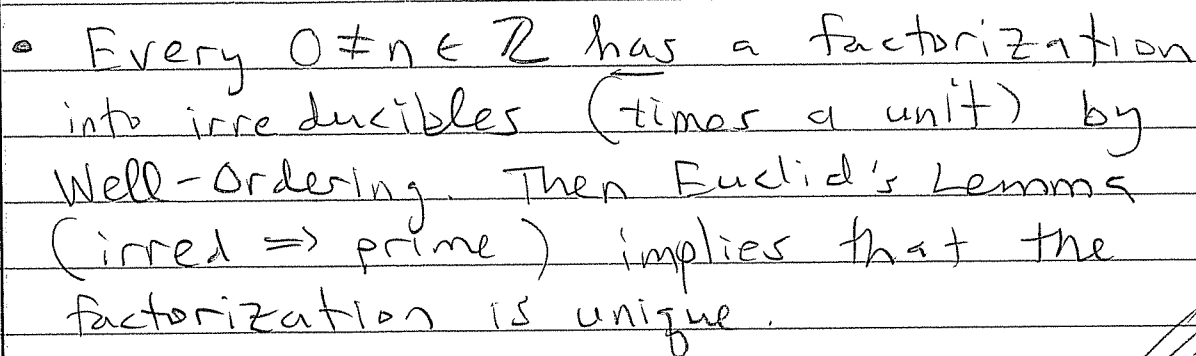 • Every 0 ≠ n ∈ ℤ has a factorization
into irreducibles (times a unit) by
Well-Ordering. Then Euclid's Lemma
(irred => prime) implies that the
factorization is unique.